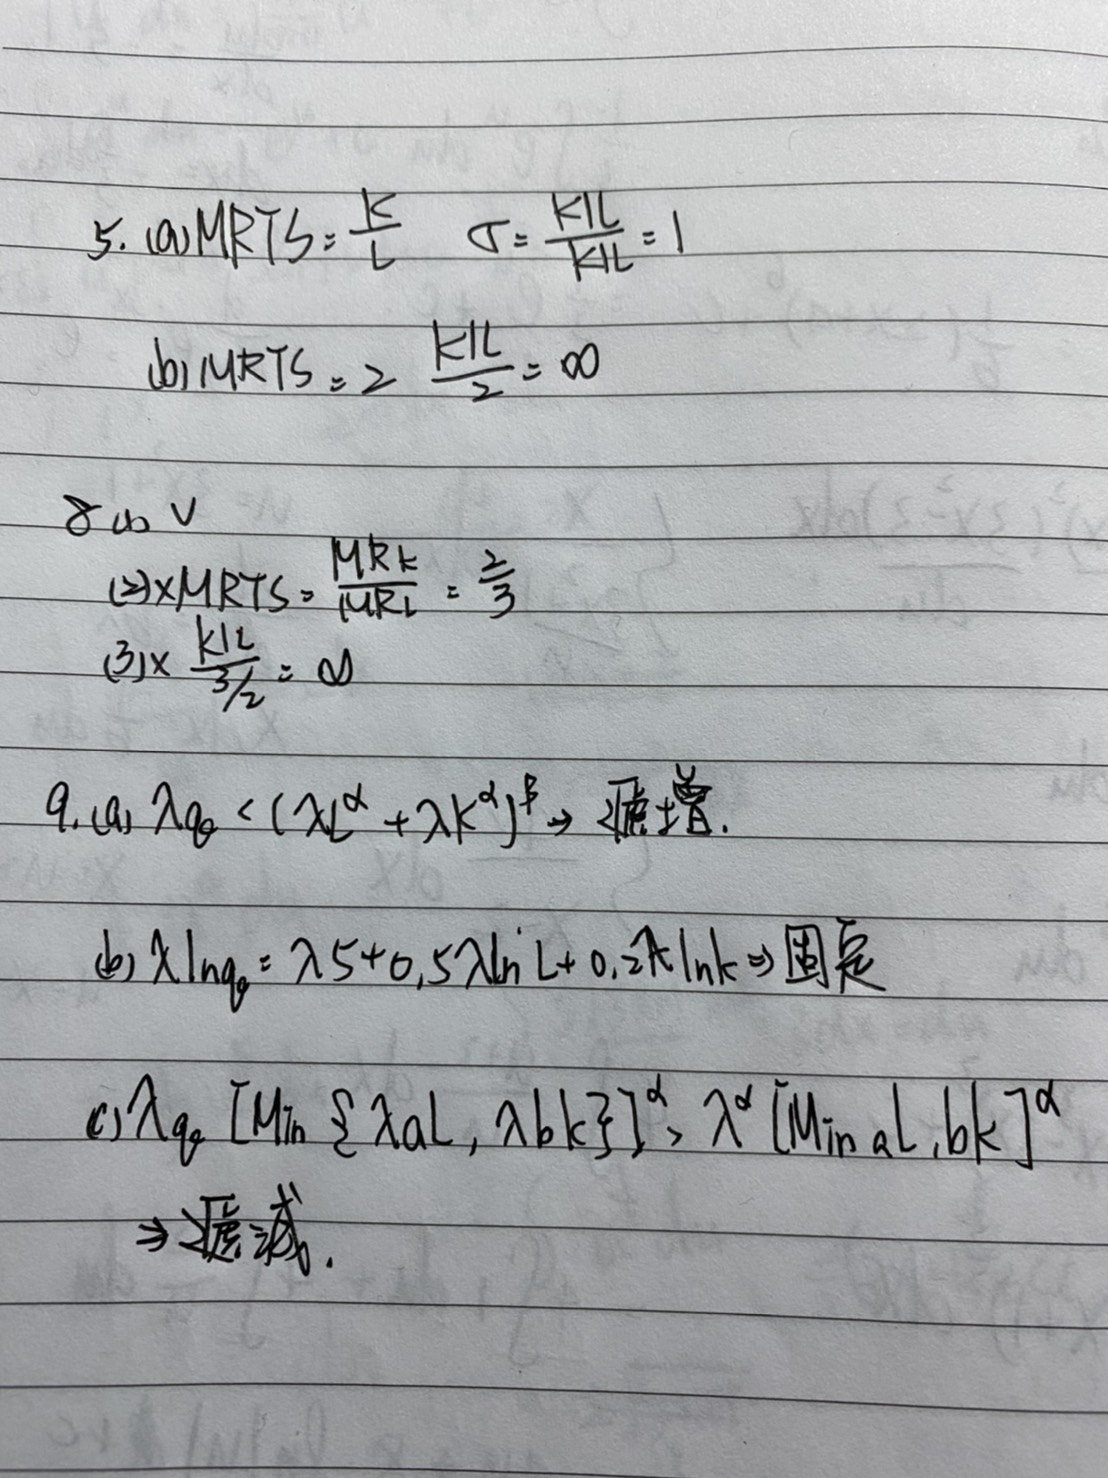 5. (a) MRTS = K/L σ = K/L / K/L = 1
(b) MRTS = 2 K/L / 2 = ∞
8 (1) V
(2) x MRTS = MRK / MRL = 2/3
(3) x K/L / 3/2 = ∞
9. (a) λq < (λL^α + λK^α)^β → 遞增.
(b) λlnq = λ5+0.5λlnL+0.2λlnk ⇒ 固定
(c) λq [Min {λaL, λbk}]^α, λ^α [Min aL, bk]^α
⇒ 遞減.